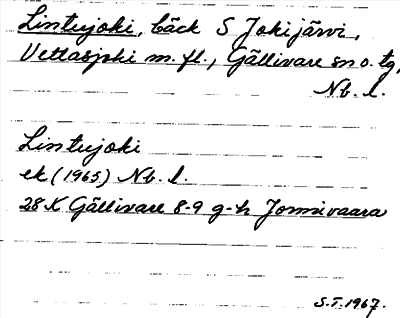 Lintujoki, bäck S Jokijärvi,
Vettasjoki m. fl., Gällivare sn o. tg,
Nb. l.
Lintujoki
ek (1965) Nb. l.
28 K Gällivare 8-9 g-h Jonnivaara
S.T. 1967.